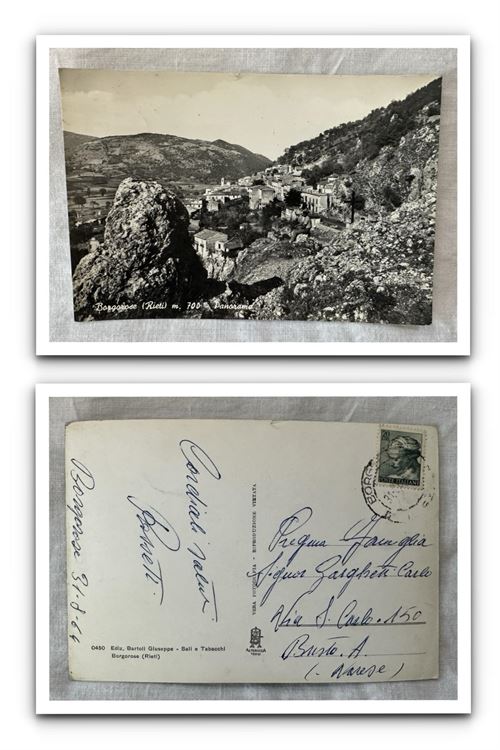 Borgorose (Rieti) m. 700 - Panorama
Borgorose 31-8-64
Cordiali saluti
VERA FOTOGRAFIA - RIPRODUZIONE VIETATA
0450 Ediz. Bartoli Giuseppe - Sali e Tabacchi
Borgorose (Rieti)
POSTE ITALIANE
BORG
Pregma Famiglia
Signor Garghetti Carlo
Via S. Carlo. 150
Busto. A.
(Varese)